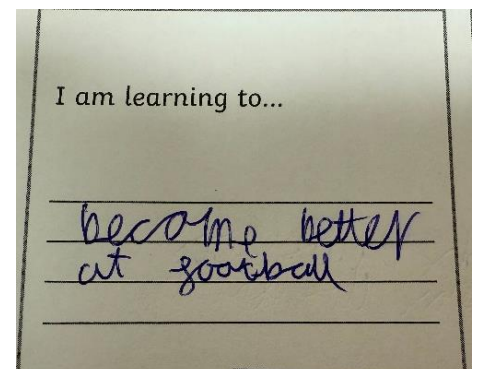 I am learning to...
become better
at football